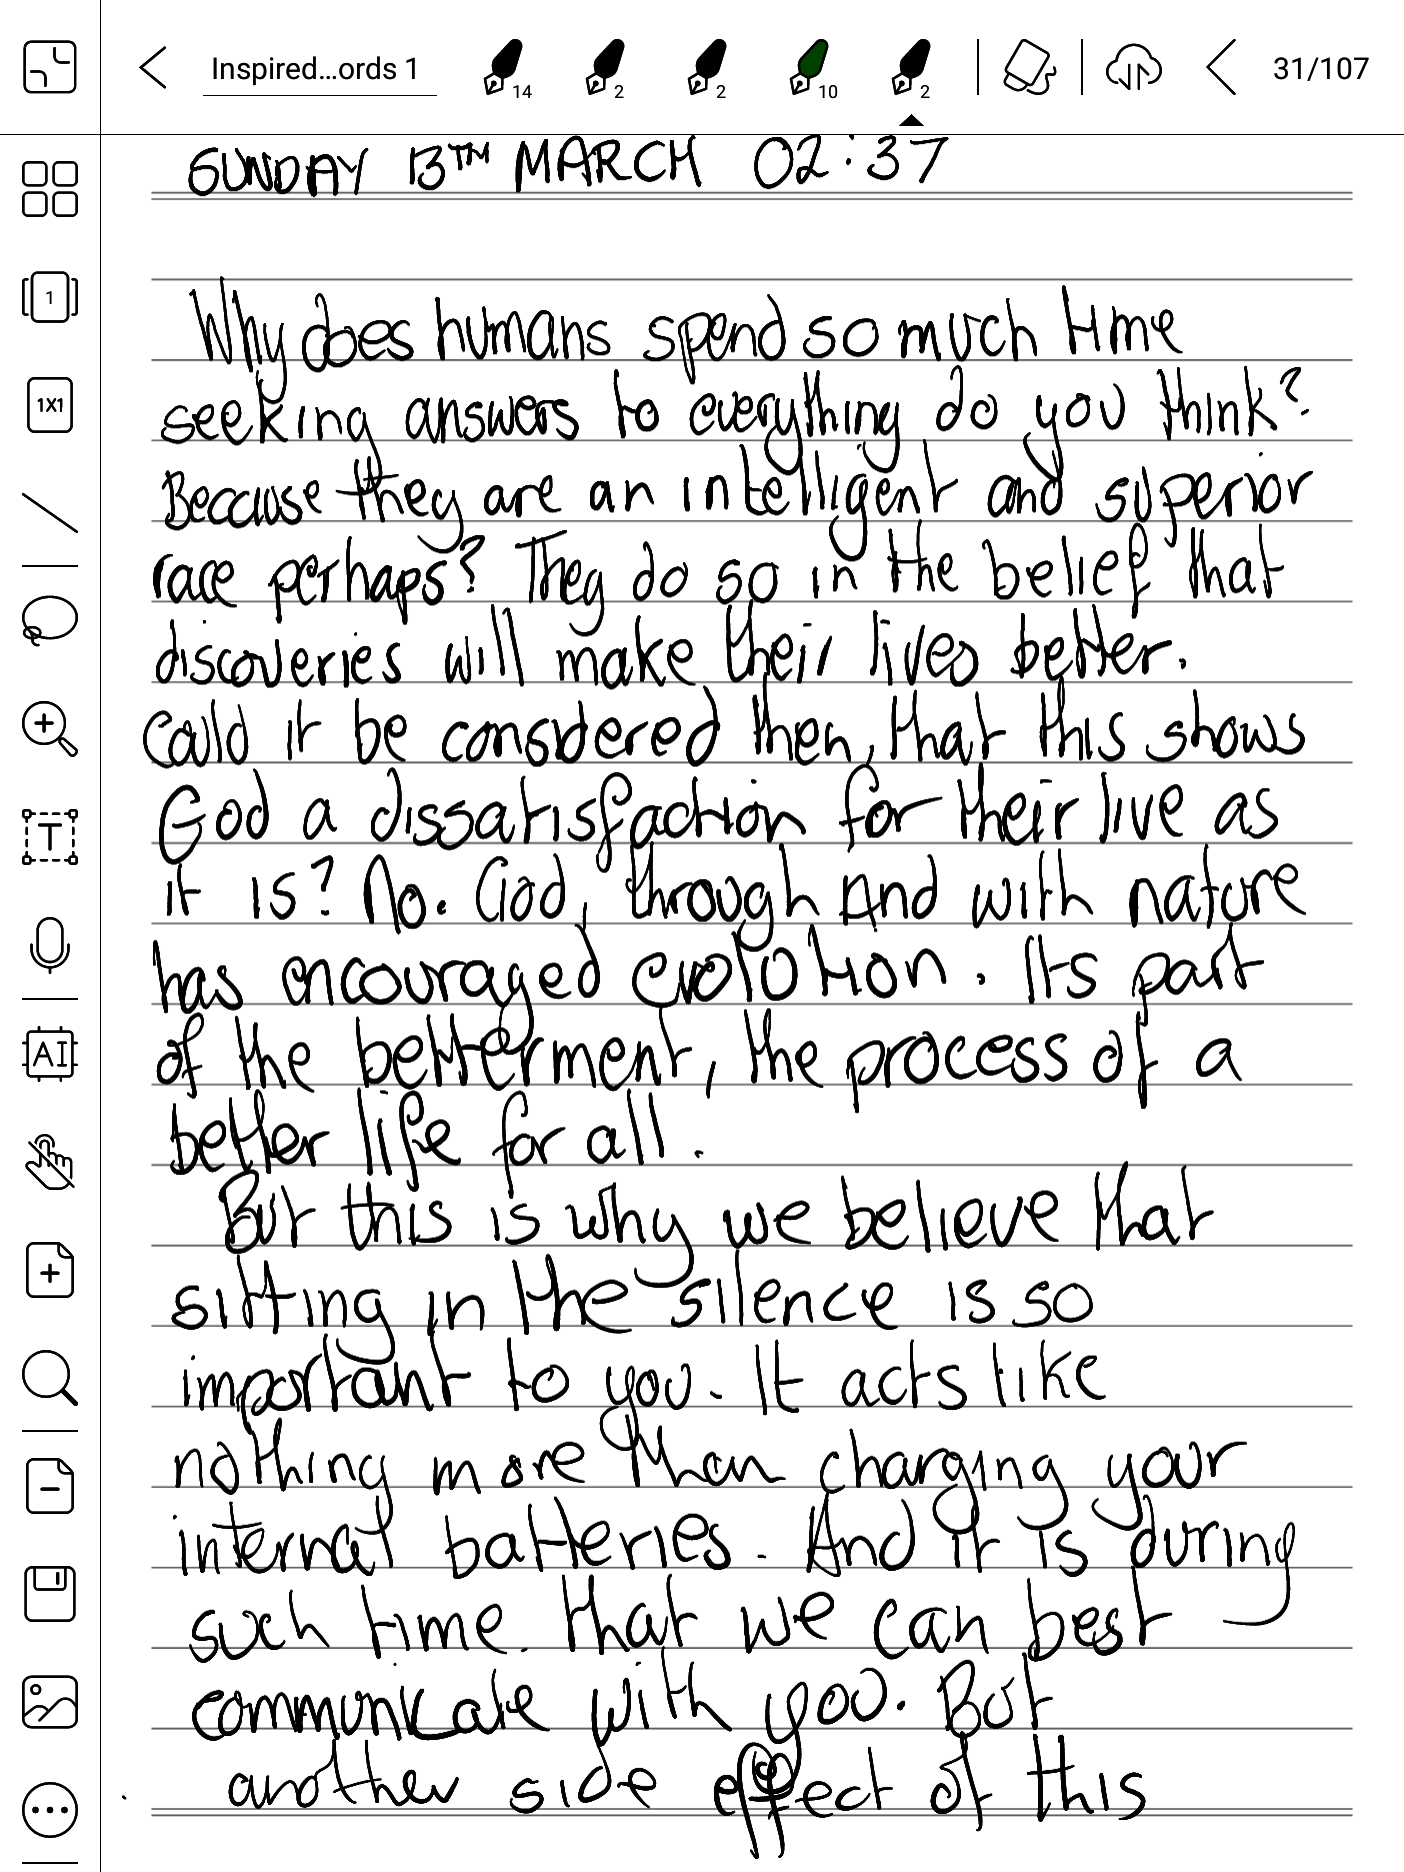 Inspired...ords 1
14
2
2
10
2
31/107
SUNDAY 13TH MARCH 02:37
1
1X1
T
AI
Why does humans spend so much time
seeking answers to everything do you think?
Because they are an intelligent and superior
race perhaps? They do so in the belief that
discoveries will make their lives better.
Could it be considered then, that this shows
God a dissatisfaction for their live as
it is? No. God, through And with nature
has encouraged evolution. Its part
of the betterment, the process of a
better life for all.
But this is why we believe that
sitting in the silence is so
important to you. It acts like
nothing more than charging your
internal batteries. And it is during
such time. that we can best
communicate with you. But
another side effect of this